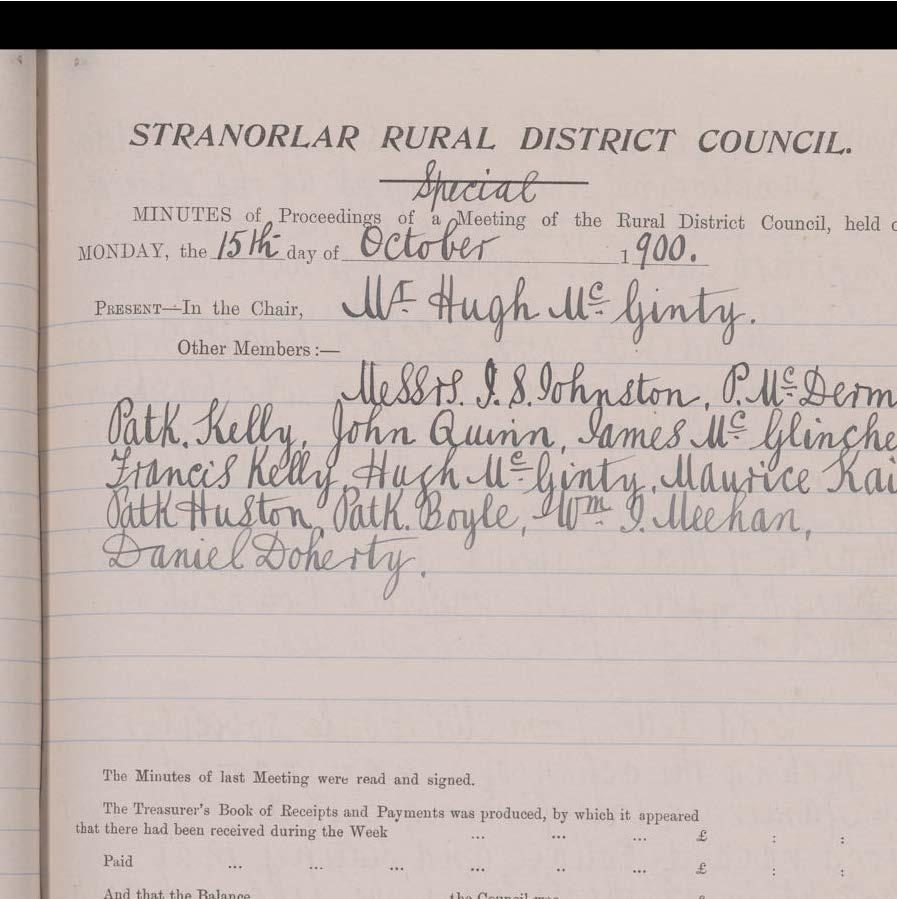 STRANORLAR RURAL DISTRICT COUNCIL.
Special
MINUTES of Proceedings of a Meeting of the Rural District Council, held
MONDAY, the 15th day of October 1900.
PRESENT—In the Chair, Mr. Hugh McGinty.
Other Members:—
Messrs. J. S. Johnston, P. McDerm
Patk. Kelly, John Quinn, James McGlinche
Francis Kelly, Hugh McGinty, Maurice Kai
Patk Huston, Patk. Boyle, Wm J. Meehan,
Daniel Doherty.
The Minutes of last Meeting were read and signed.
The Treasurer's Book of Receipts and Payments was produced, by which it appeared
that there had been received during the Week ... ... ... £ : :
Paid ... ... ... ... .. ... £ : :
And that the Balance the Council was